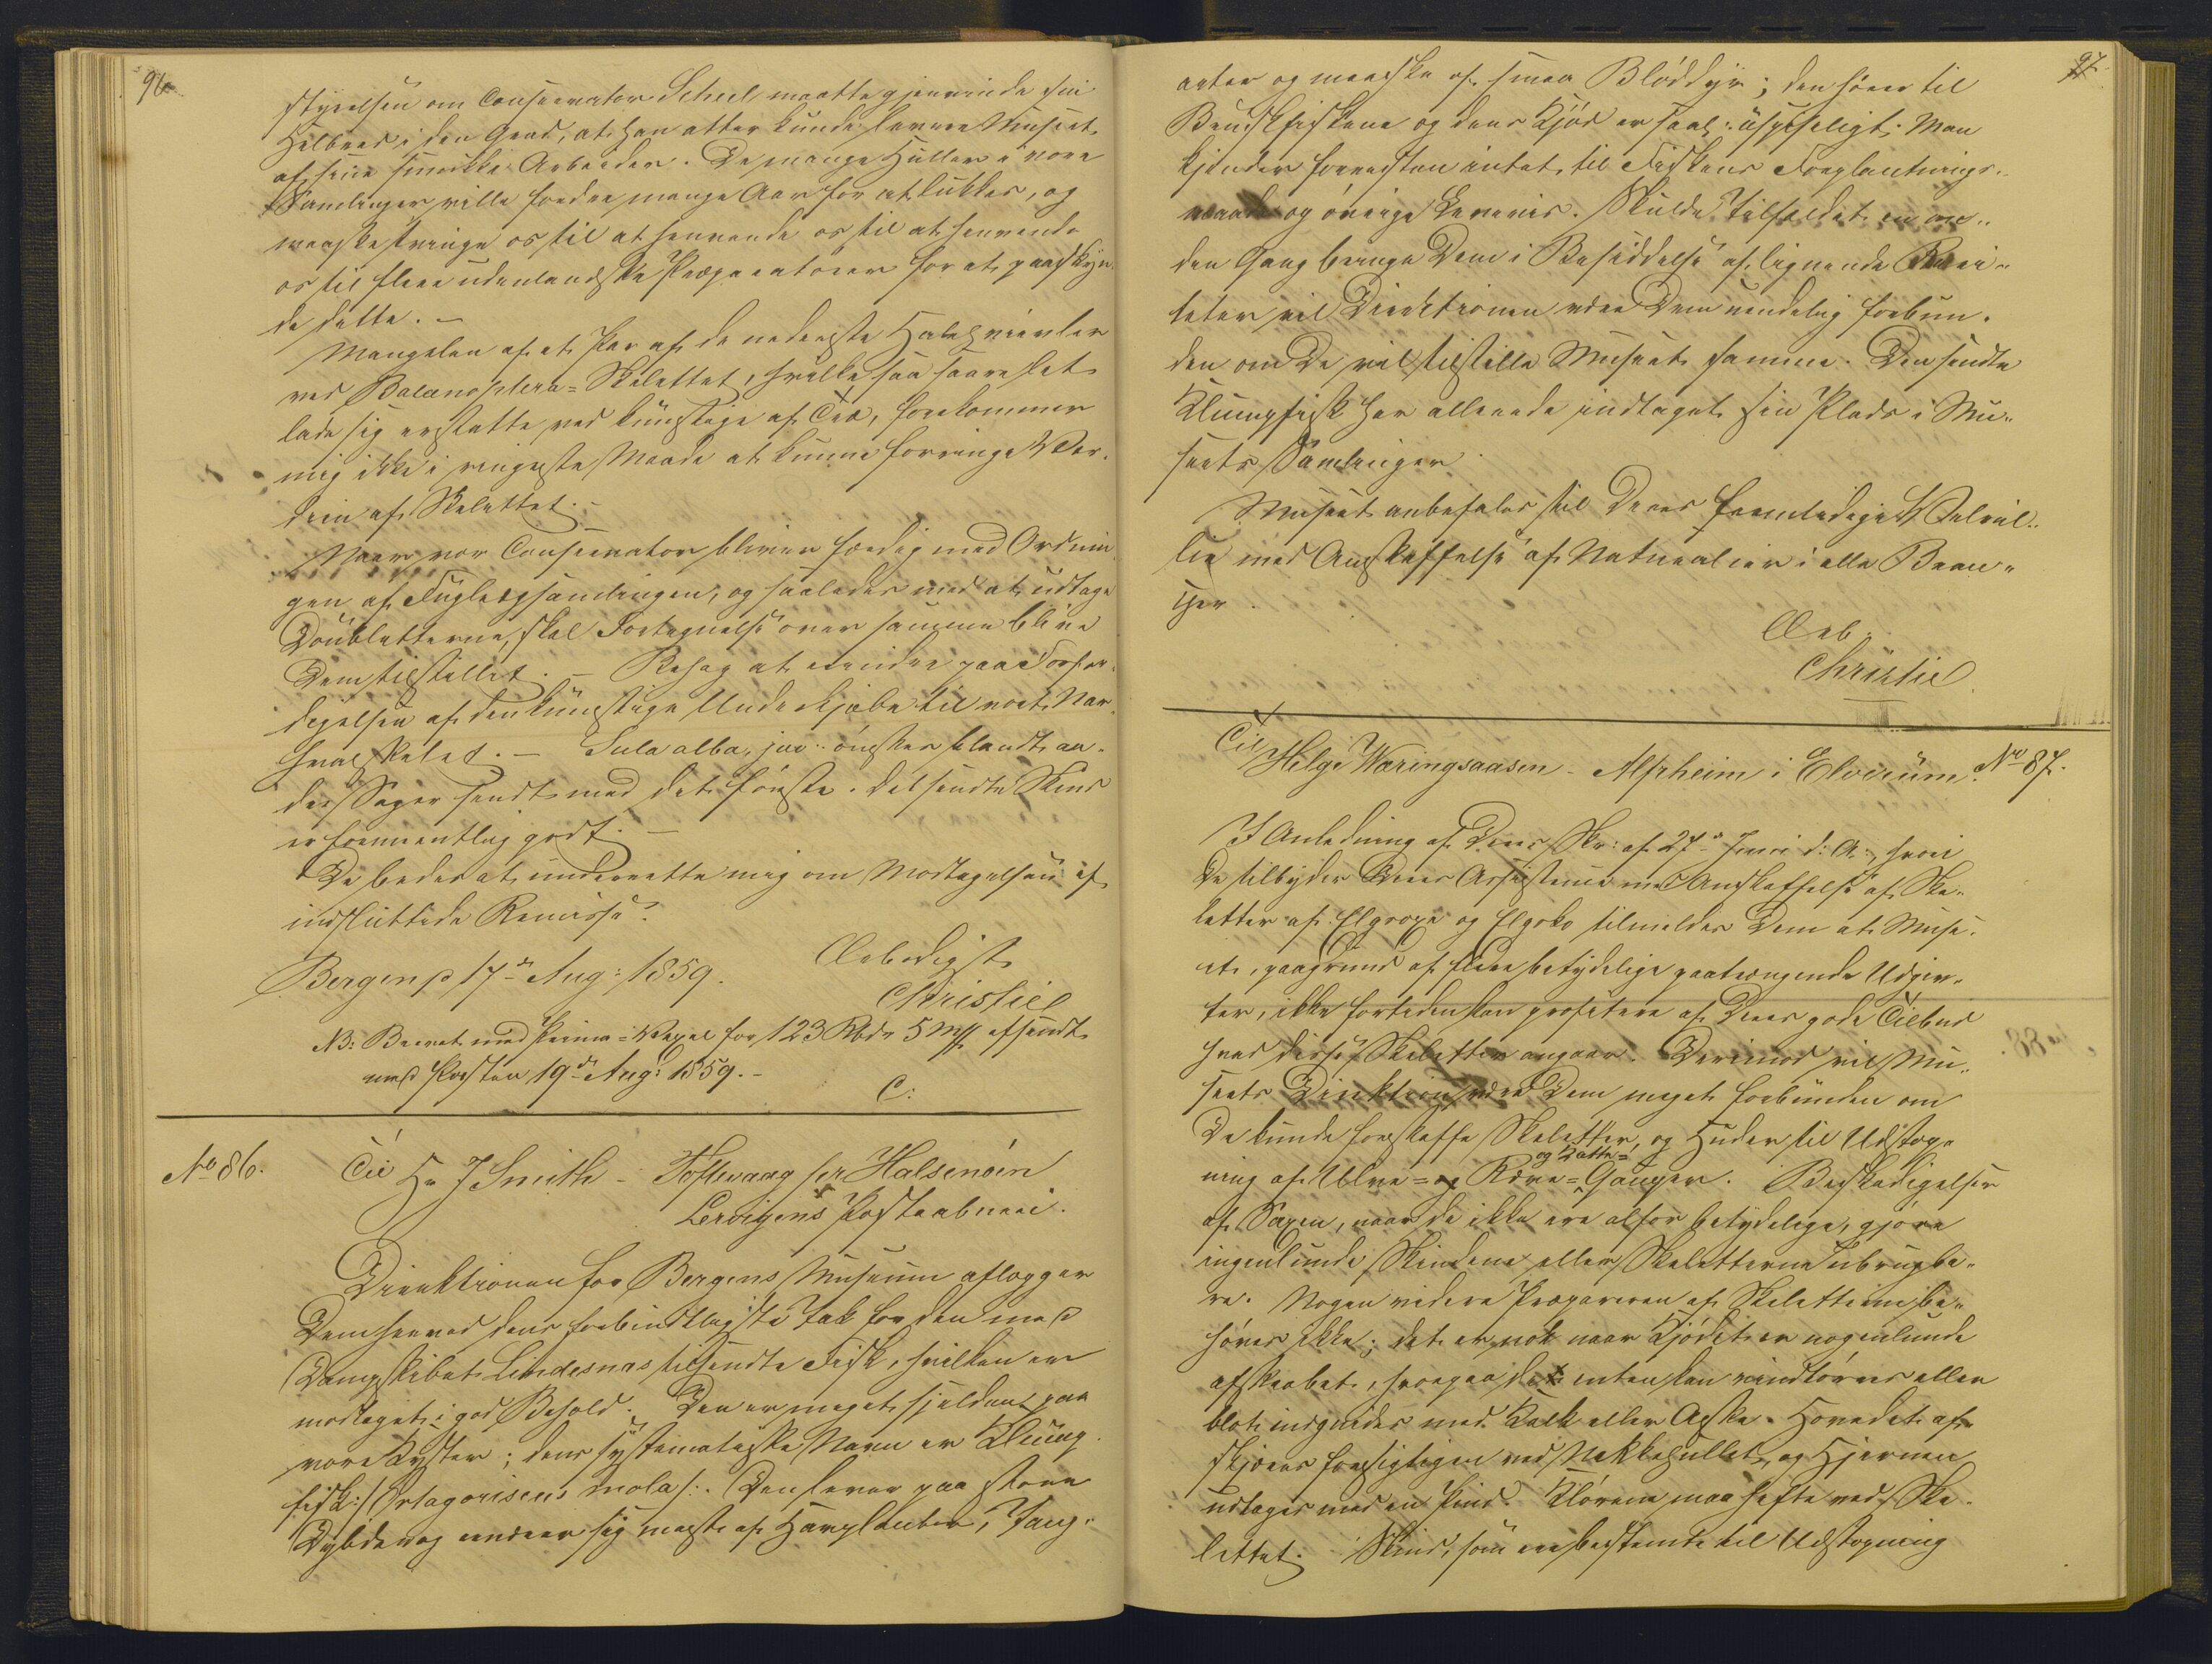 96.
styrelsen om Conservator Scheel maatte gjenvinde sin
Helbred i den Grad, at han atter kunde levere Museet
af sine smukke Arbeider. De mange Huller i vore
Samlinger ville fordre mange Aar for at lukkes, og
maaske tvinge os til at henvende os til at henvende
os til flere udenlandske Præparatører for at paaskyn-
de dette. –
Mangelen af et Par af de nederste Halehvirvler
ved Balænoptera=Skelettet, hvilke saa saare let
lade sig erstatte ved kunstige af Træ, forekommer
mig ikke i ringeste Maade at kunne forringe Vær-
dien af Skelettet. –
Naar vor Conservator bliver færdig med Ordnin
gen af Fuglesamlingen, og saaledes med at udtage
Doubletterne, skal Fortegnelse over samme blive
Dem tilstillet. – Behag at erindre paa Forfær-
digelsen af den kunstige Underkjæbe til vort Nar-
hvalskelet. – Sula alba, juv: ønskes blandt an-
dre Sager sendt med det første. Det sendte Skind
er formentlig godt. –
De bedes at underrette mig om Modtagelsen af
indsluttede Remisse.
Bergen p 17de Aug: 1859.
Ærbødigst
Christie
NB: Brevet med Prima=Vexel for 123 Rbdr 5 Mk afsendt
med Posten 19de Aug: 1859. –
C:
No 86.
Til Hr J Smith – Toftevaag per Halsenøen
Lervigens Postaabneri.
Direktionen for Bergens Museum aflægger
Dem herved dens forbindtligste Tak for den med
Dampskibet Lindesnæs tilsendte Fisk, hvilken er
modtaget i god Behold. Den er meget sjelden paa
vore Kyster; dens systematiske Navn er Klump-
fisk :/ Ortagoriscus mola /:. Den lever paa store
Dybder og nærer sig mest af Havplanter, Tang-
97.
arter og maaske af smaa Bløddyr; den hører til
Bruskfiskene og dens Kjød er saal: uspiseligt. Man
kjender forresten intet til Fiskens Forplantnings-
maade og øvrige Leveviis. Skulde Tilfældet en an-
den Gang bringe Dem i Besiddelse af lignende Rari-
teter vil Direktionen være Dem uendelig forbun-
den om De vil tilstille Museet samme. Den sendte
Klumpfisk har allerede indtaget sin Plads i Mu-
seets Samlinger.
Museet anbefales til Deres fremtidige Velvil-
lie med Anskaffelse af Naturalier i alle Bran-
cher.
Ærb.
Christie
Til Helge Wæringsaasen – Alpheim i Elverum. No 87.
I Anledning af Deres Skr: af 27de Juni d: A:, hvori
De tilbyder Deres Assistence med Anskaffelse af Ske-
letter af Elgoxe og Elgsko tilmeldes Dem at Muse-
et, paagrund af flere betydelige paatrængende Udgiv-
ter, ikke fortiden kan profitere af Deres gode Tilbud
hvad disse Skeletter angaar. Derimod vil Mu-
seets Direktion være Dem meget forbunden om
De kunde forskaffe Skeletter, og Huder til Udstop-
og Gatte=
ning af Ulve= og Ræve= Gauper. Beskadigelser
af Saxen, naar de ikke ere alfor betydelige, gjøre
ingenlunde Skindene eller Skeletterne ubrugba-
re. Nogen videre Præpareren af Skeletterne be-
høves ikke; det er nok naar Kjødet er nogenlunde
afskrabet, hvorpaa det enten kan vindtørres eller
blot indgnides med Kalk eller Aske. Hovedet af-
skjæres forsigtigen ved Nakkehullet, og Hjernen
udtages med en Pind. Kløerne maa hefte ved Ske-
lettet. Skind, som ere bestemte til Udstopning